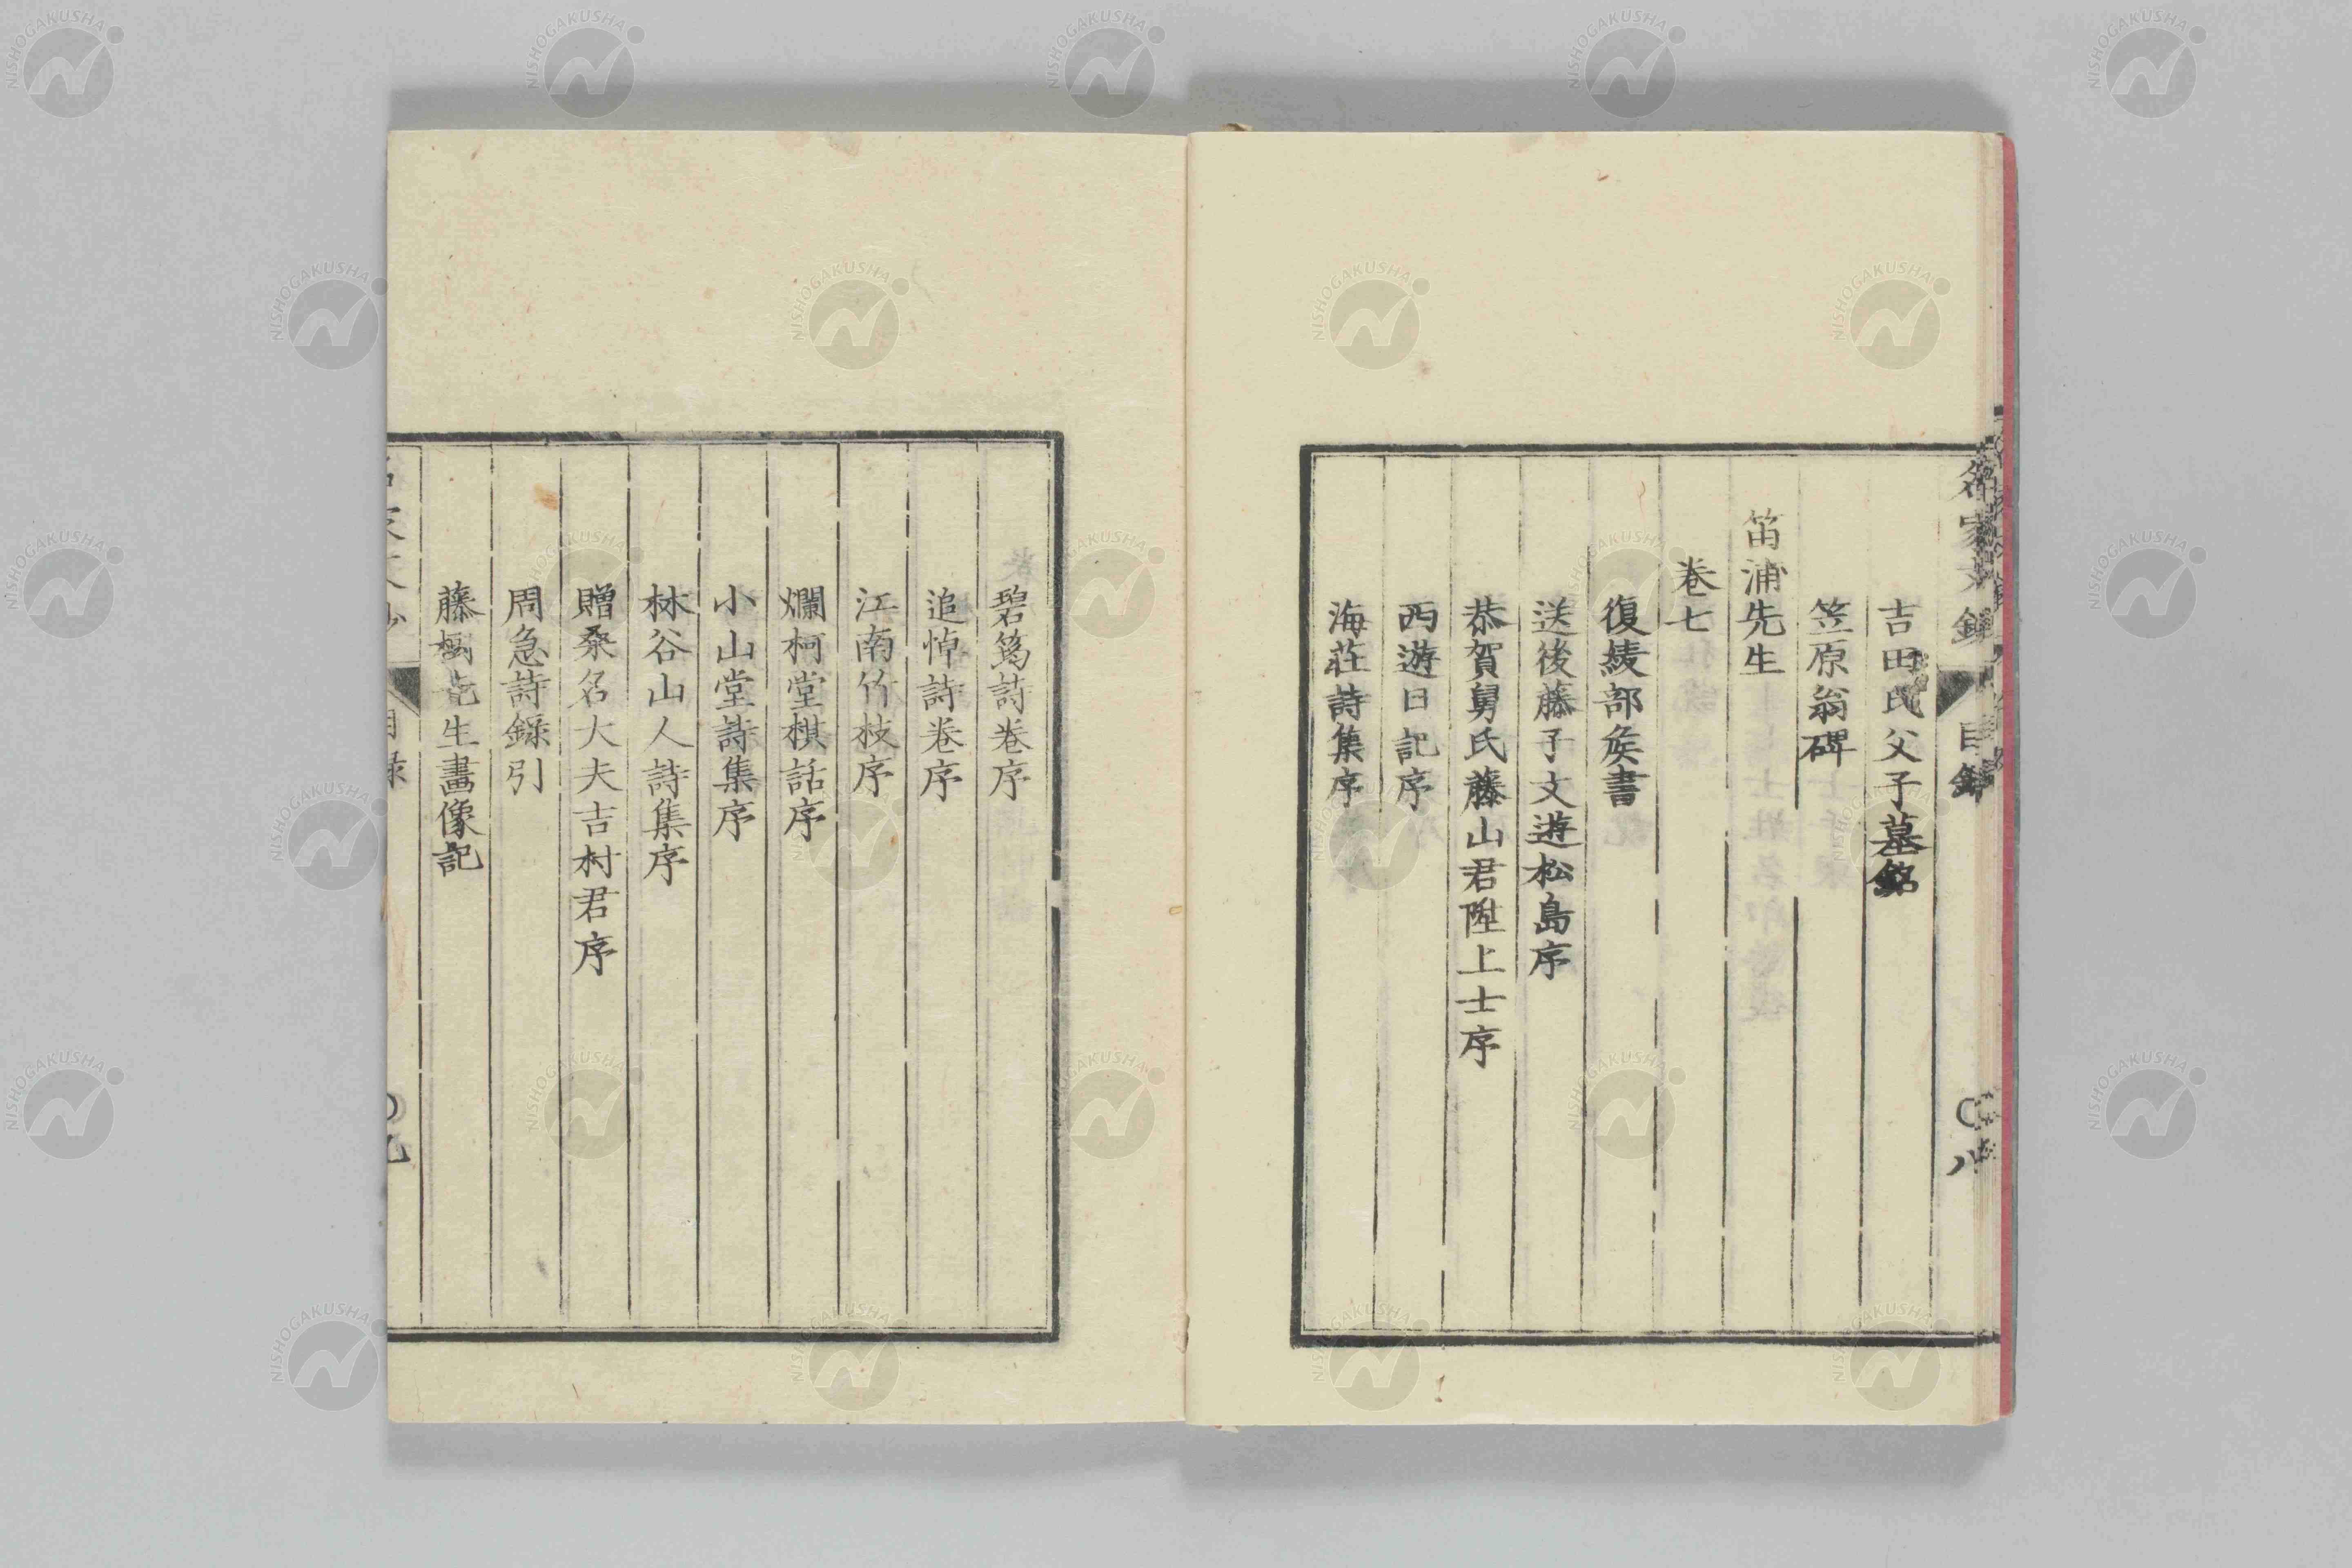 吉田氏父子墓銘
笠原翁碑
笛浦先生
卷七
復綾部矦書
送後藤子文遊松島序
恭賀舅氏藤山君陞上士序
西遊日記序
海莊詩集序
目錄
八
碧蔿詩卷序
追悼詩卷序
江南竹枝序
爛柯堂棋話序
小山堂詩集序
林谷山人詩集序
贈桑名大夫吉村君序
周急詩錄引
藤樹先生畫像記
NISHOGAKUSHA